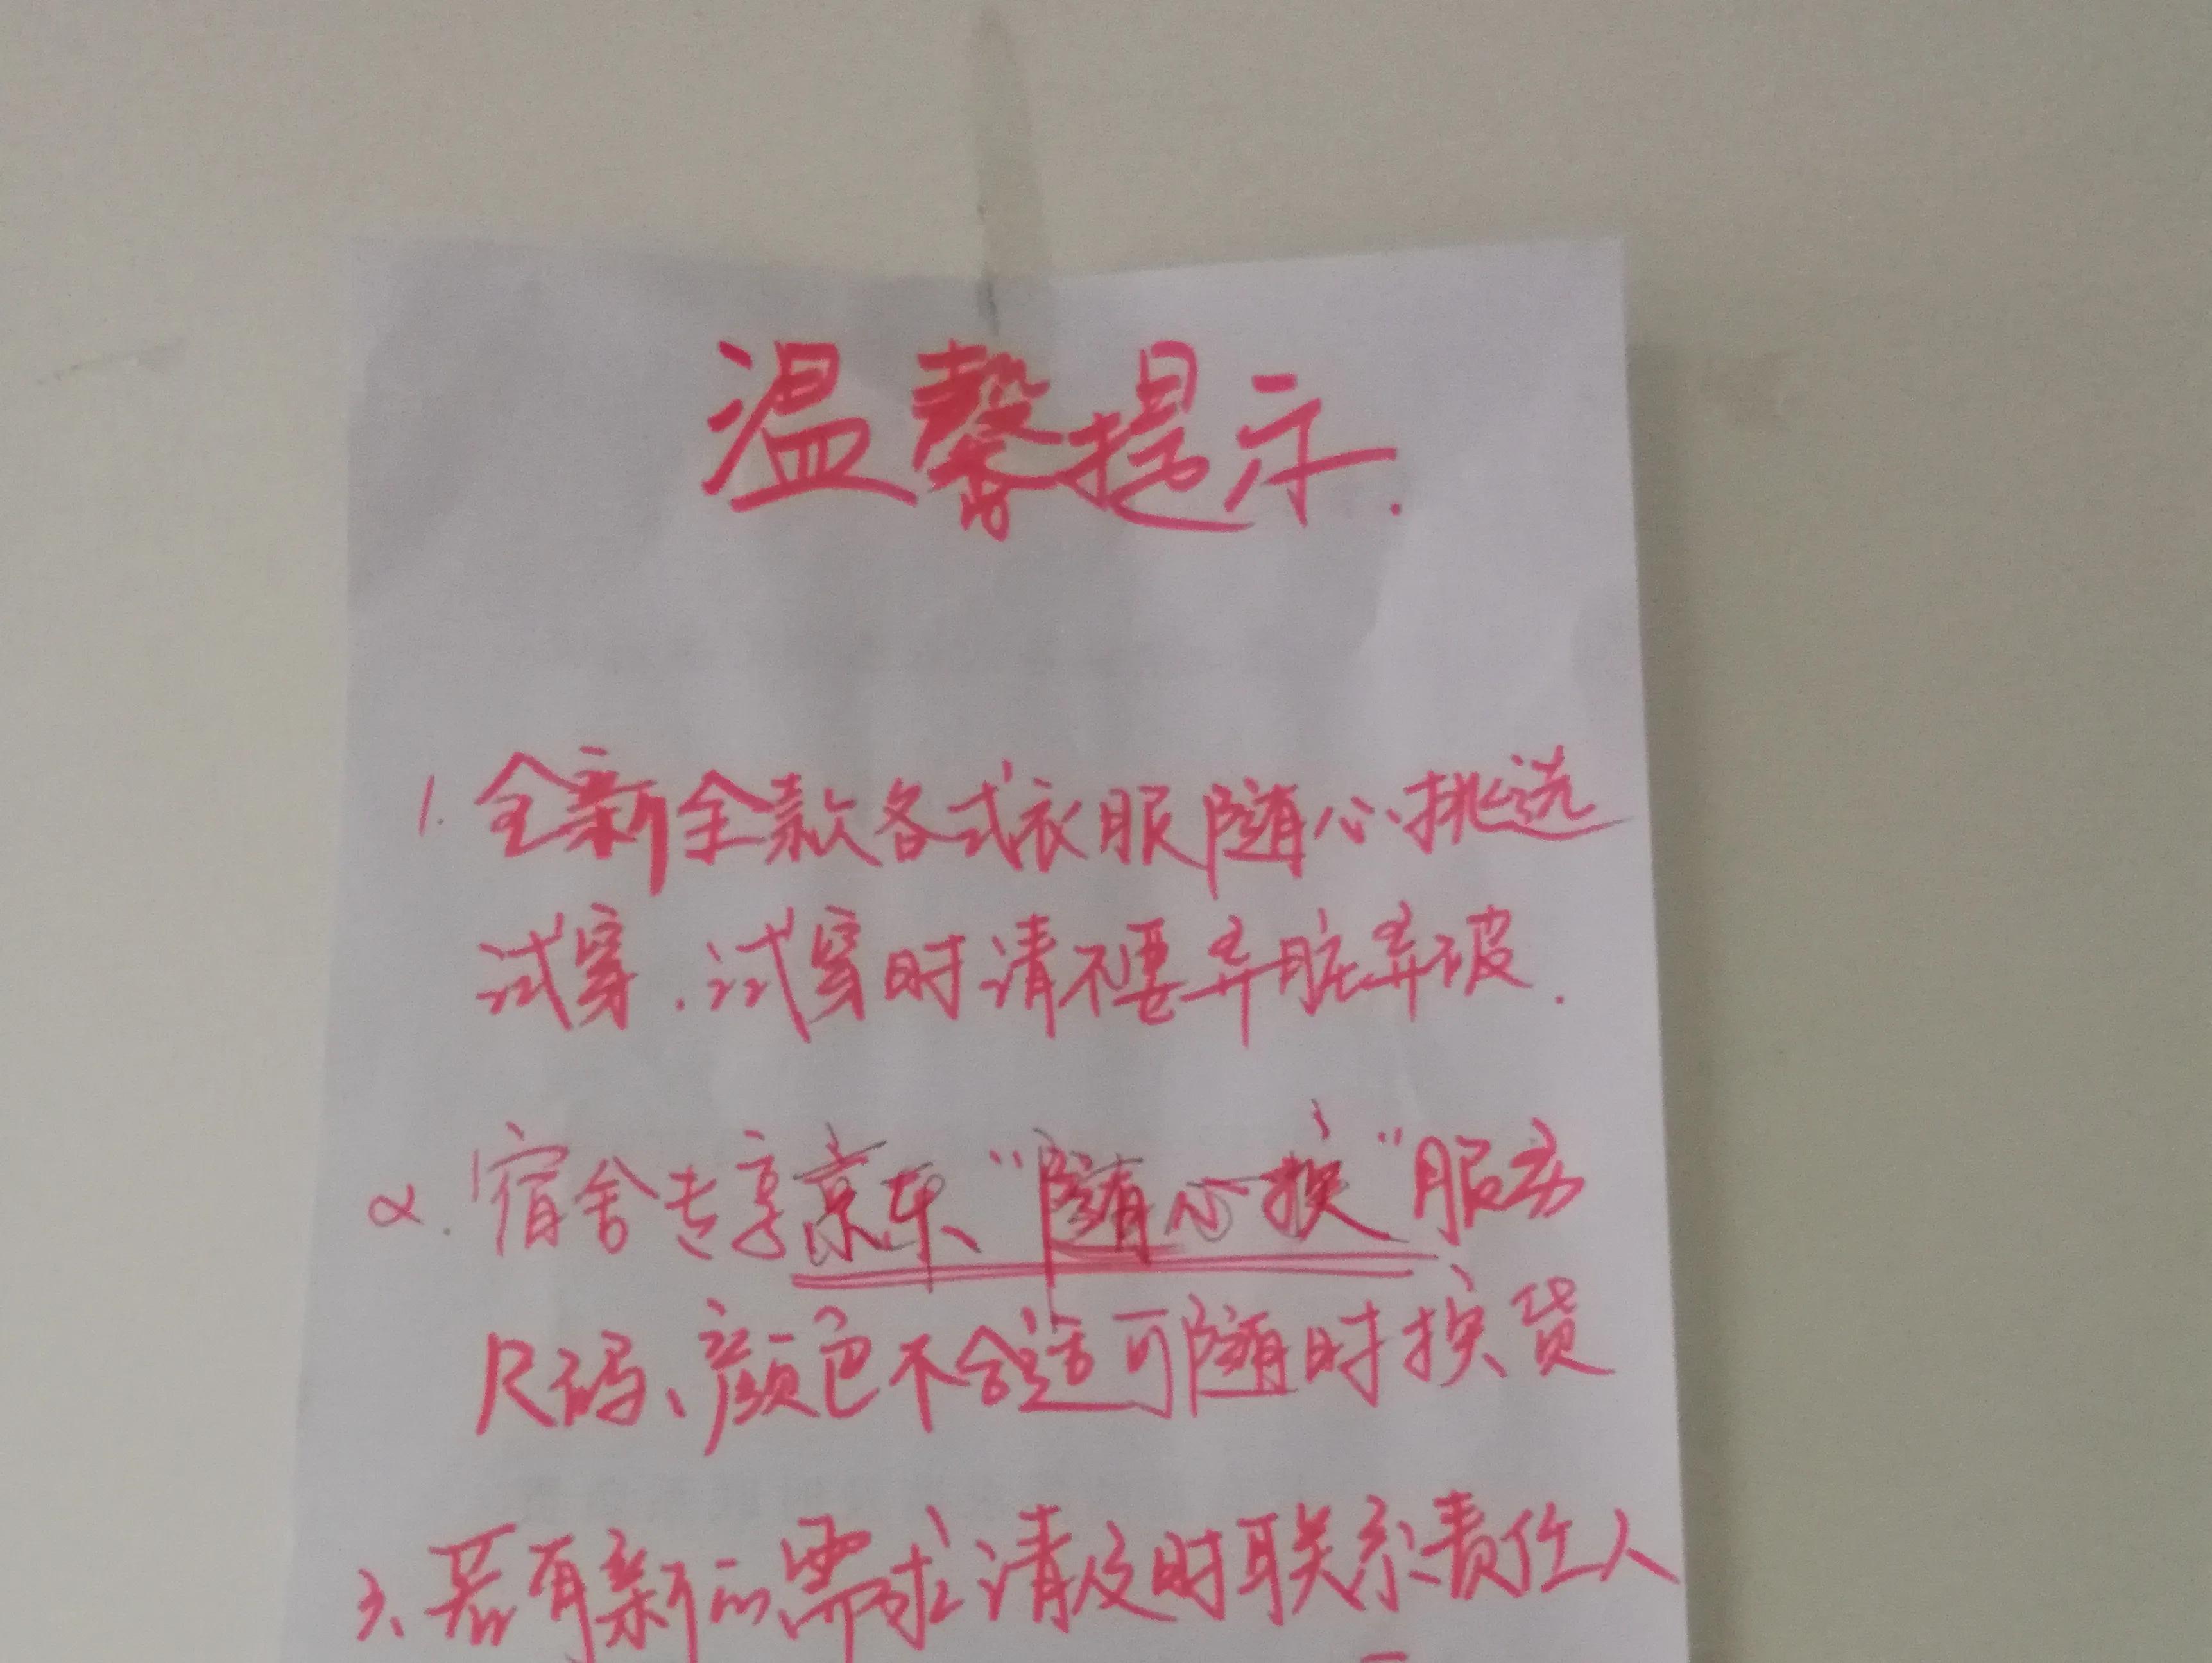 温馨提示.
1. 全新全款各式衣服随心挑选
试穿.试穿时请不要弄脏弄破.
2. 宿舍专享京东“随心换”服务
尺码、颜色不合适可随时换货
3、若有新的需求请及时联系责任人